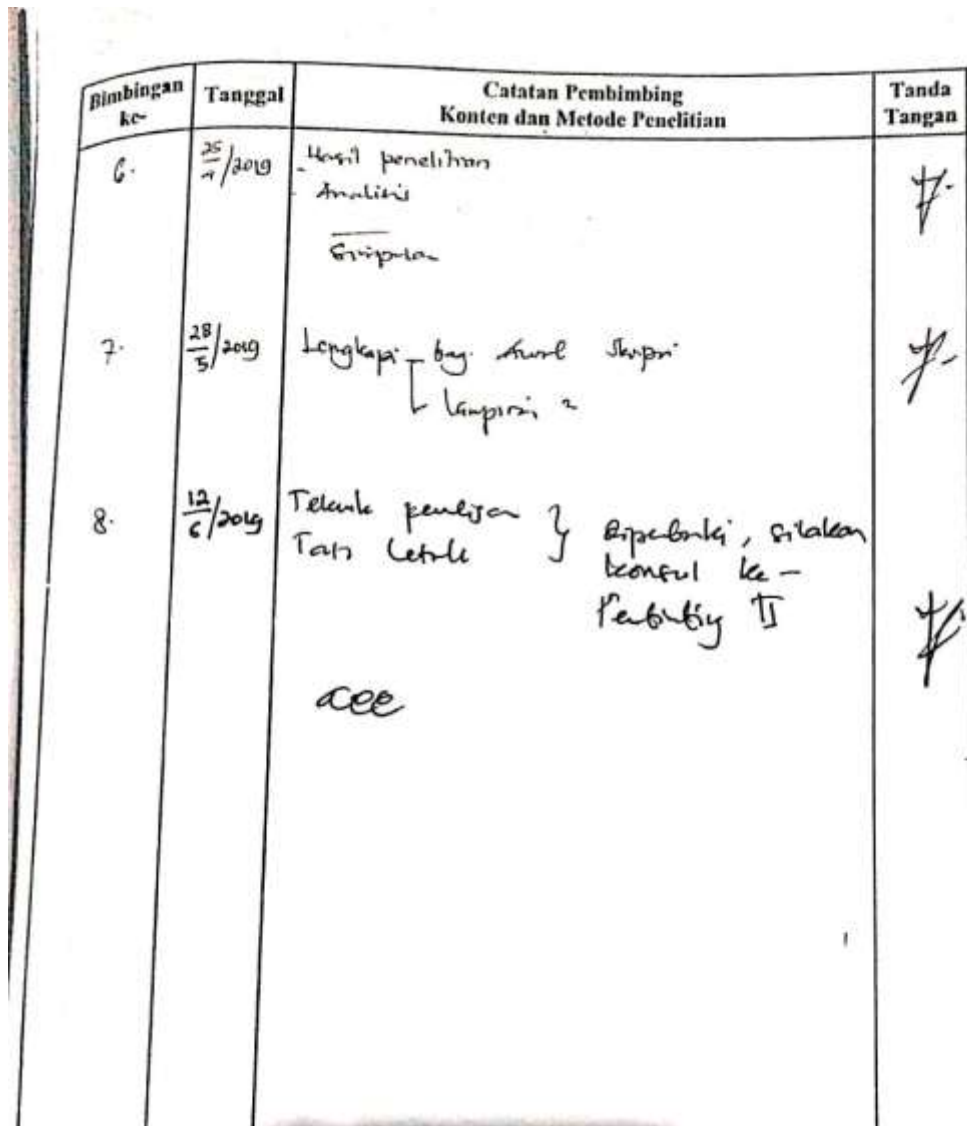 Bimbingan ke-
Tanggal
Catatan Pembimbing
Konten dan Metode Penelitian
Tanda Tangan
6. 25/4/2019 - Hasil penelitian
- Analisis
Simpulan
7. 28/5/2019 Lengkapi - bag. Awal Skripsi
lampiran 2
8. 12/6/2019 Teknik penulisan } diperbaiki, silakan
Tata Letak konsul ke-
Pembimbing II
acc